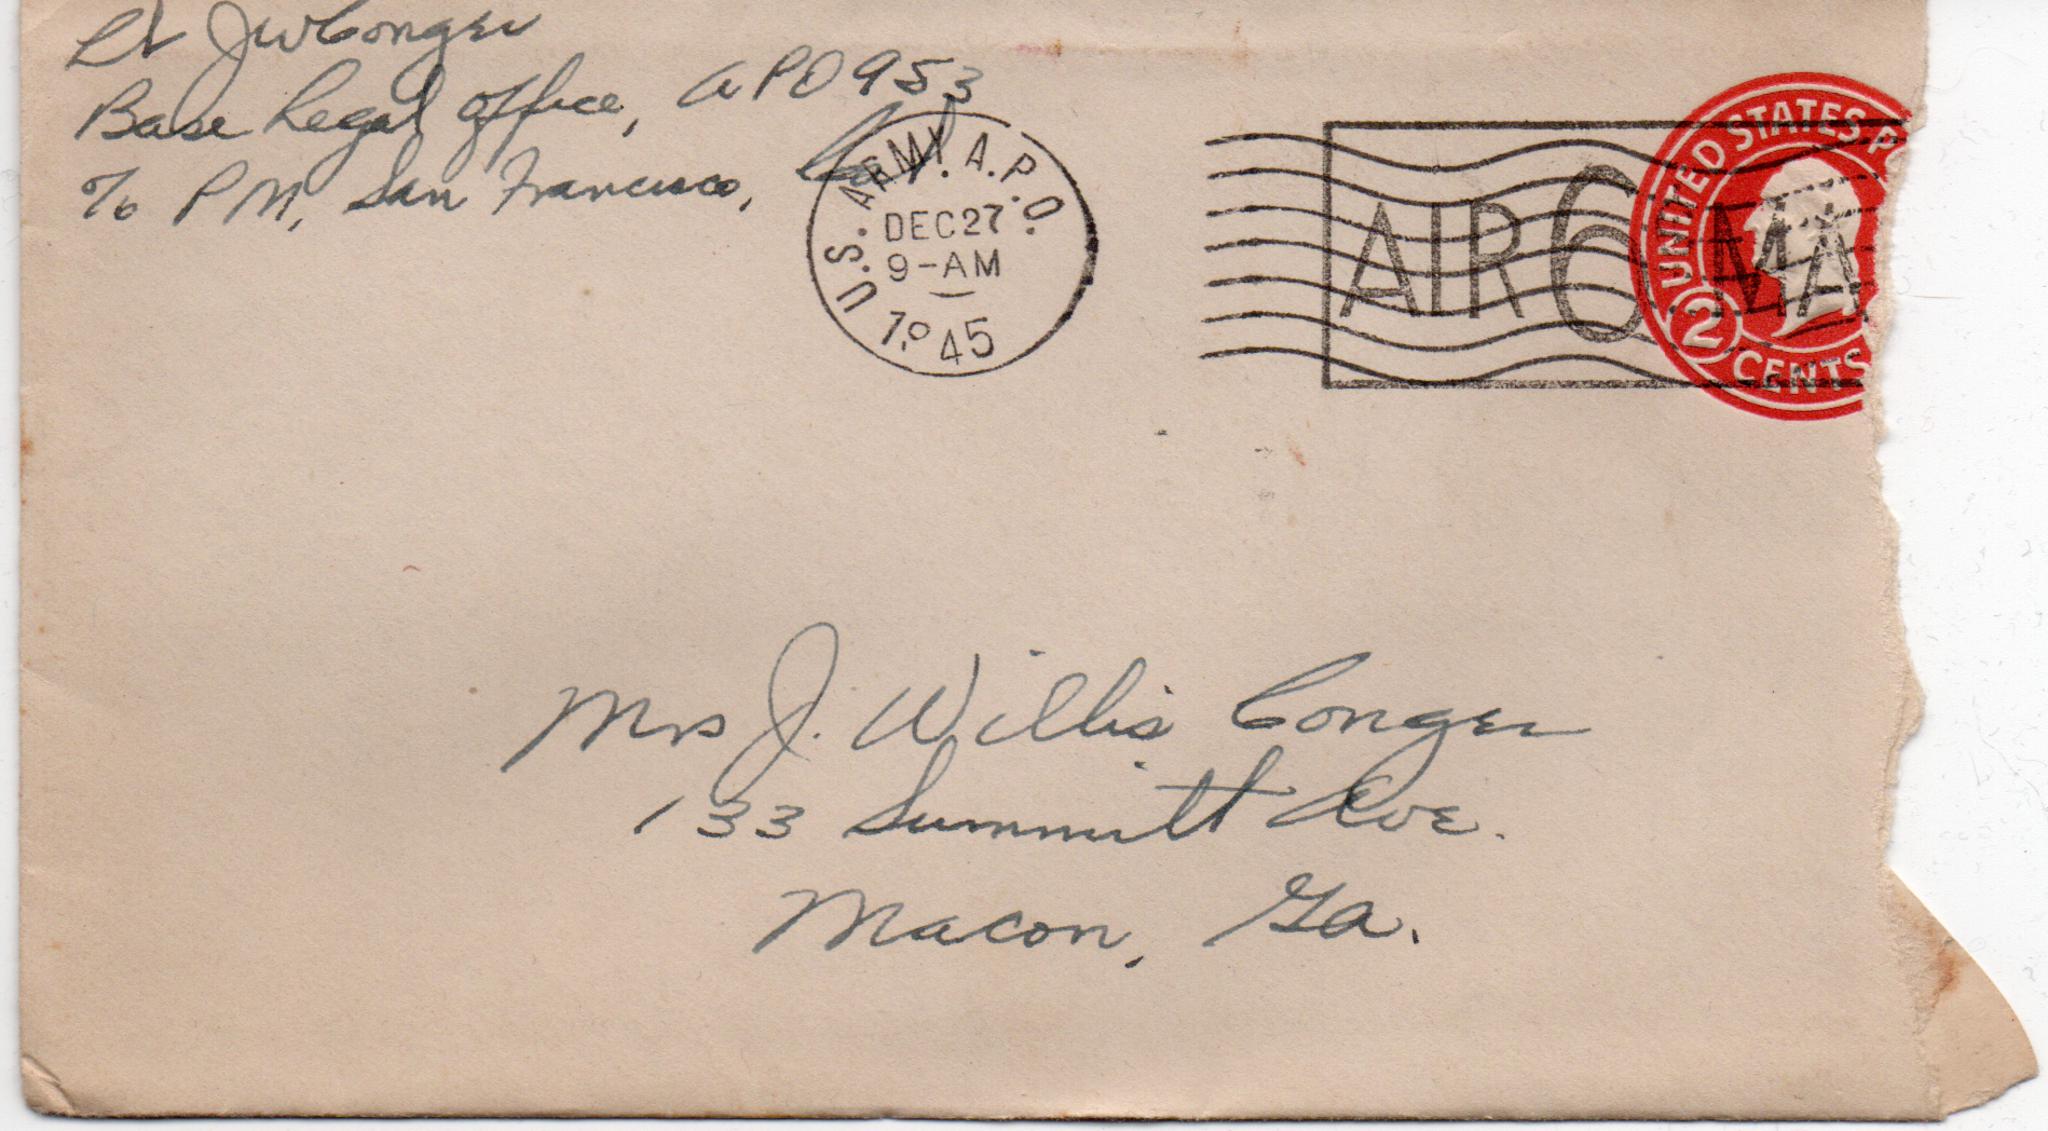 Lt JWConger
Base Legal Office, APO 953
c/o PM, San Francisco, Calif.
U.S. ARMY A.P.O.
DEC 27
9-AM
1945
AIR 6 MA
UNITED STATES PO
2 CENTS
Mrs J. Willis Conger
133 Summitt Ave.
Macon, Ga.